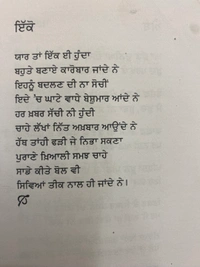 ਇੱਕੋ
ਯਾਰ ਤਾਂ ਇੱਕ ਈ ਹੁੰਦਾ
ਬਹੁਤੇ ਬਣਾਏ ਕਾਰੋਬਾਰ ਜਾਂਦੇ ਨੇ
ਇਹਨੂੰ ਬਦਲਣ ਦੀ ਨਾ ਸੋਚੀਂ
ਇਦੇ 'ਚ ਘਾਟੇ ਵਾਧੇ ਬੇਸ਼ੁਮਾਰ ਆਂਦੇ ਨੇ
ਹਰ ਖ਼ਬਰ ਸੱਚੀ ਨੀ ਹੁੰਦੀ
ਚਾਹੇ ਲੱਖਾਂ ਨਿੱਤ ਅਖ਼ਬਾਰ ਆਉਂਦੇ ਨੇ
ਹੱਥ ਤਾਂਹੀ ਫੜੀ ਜੇ ਨਿਭਾ ਸਕਣਾ
ਪੁਰਾਣੇ ਖ਼ਿਆਲੀ ਸਮਝ ਚਾਹੇ
ਸਾਡੇ ਕੀਤੇ ਬੋਲ ਵੀ
ਸਿਵਿਆਂ ਤੀਕ ਨਾਲ ਹੀ ਜਾਂਦੇ ਨੇ।